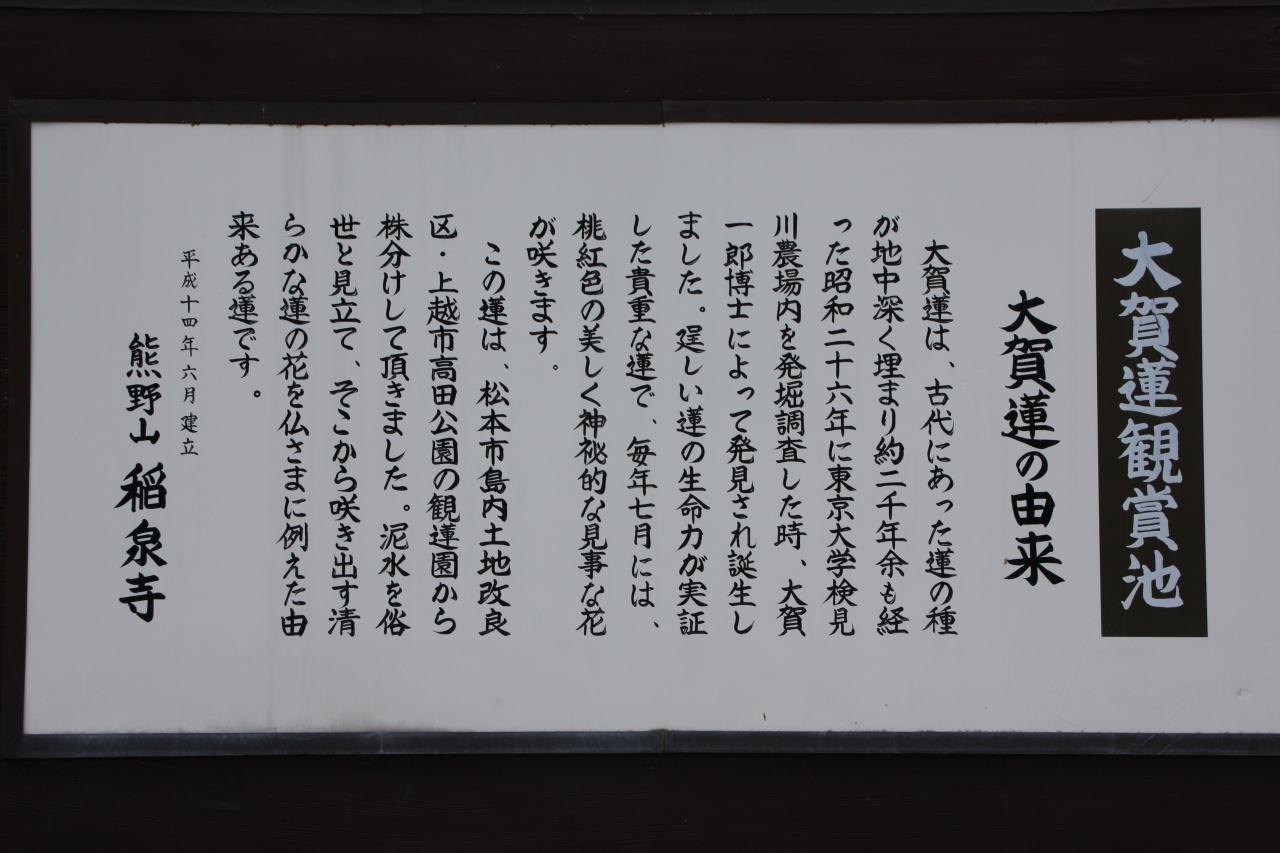 大賀蓮観賞池
大賀蓮の由来
大賀蓮は、古代にあった蓮の種
が地中深く埋まり約二千年余も経
った昭和二十六年に東京大学検見
川農場内を発堀調査した時、大賀
一郎博士によって発見され誕生し
ました。逞しい蓮の生命力が実証
した貴重な蓮で、毎年七月には、
桃紅色の美しく神秘的な見事な花
が咲きます。
この蓮は、松本市島内土地改良
区・上越市高田公園の観蓮園から
株分けして頂きました。泥水を俗
世と見立て、そこから咲き出す清
らかな蓮の花を仏さまに例えた由
来ある蓮です。
平成十四年六月建立
熊野山稲泉寺